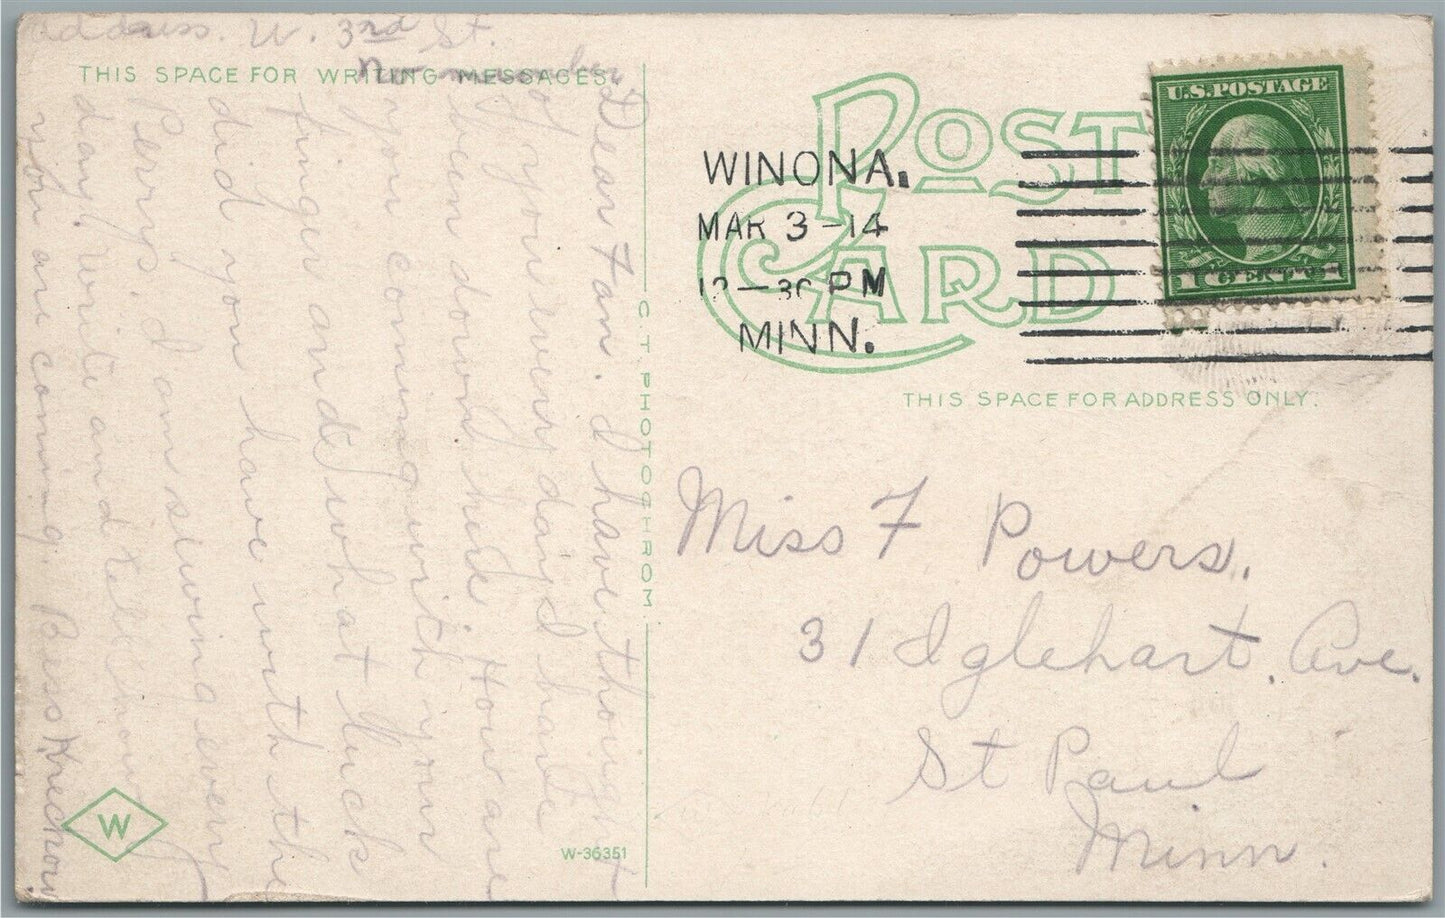 Address. W. 3rd St.
THIS SPACE FOR WRITING MESSAGES.
Dear Fan. I have thought
of you every day I have
been down here How are
you coming with your
finger and what luck
did you have with the
Perrys. I am sewing every
day. Write and tell
you are coming. Bess
C. T. PHOTOCHROM
W
W-36351
POST
CARD
WINONA.
MAR 3-14
12-30 PM
MINN.
U.S. POSTAGE
1 CENT 1
THIS SPACE FOR ADDRESS ONLY.
Miss F Powers.
31 Iglehart. Ave.
St Paul
Minn.